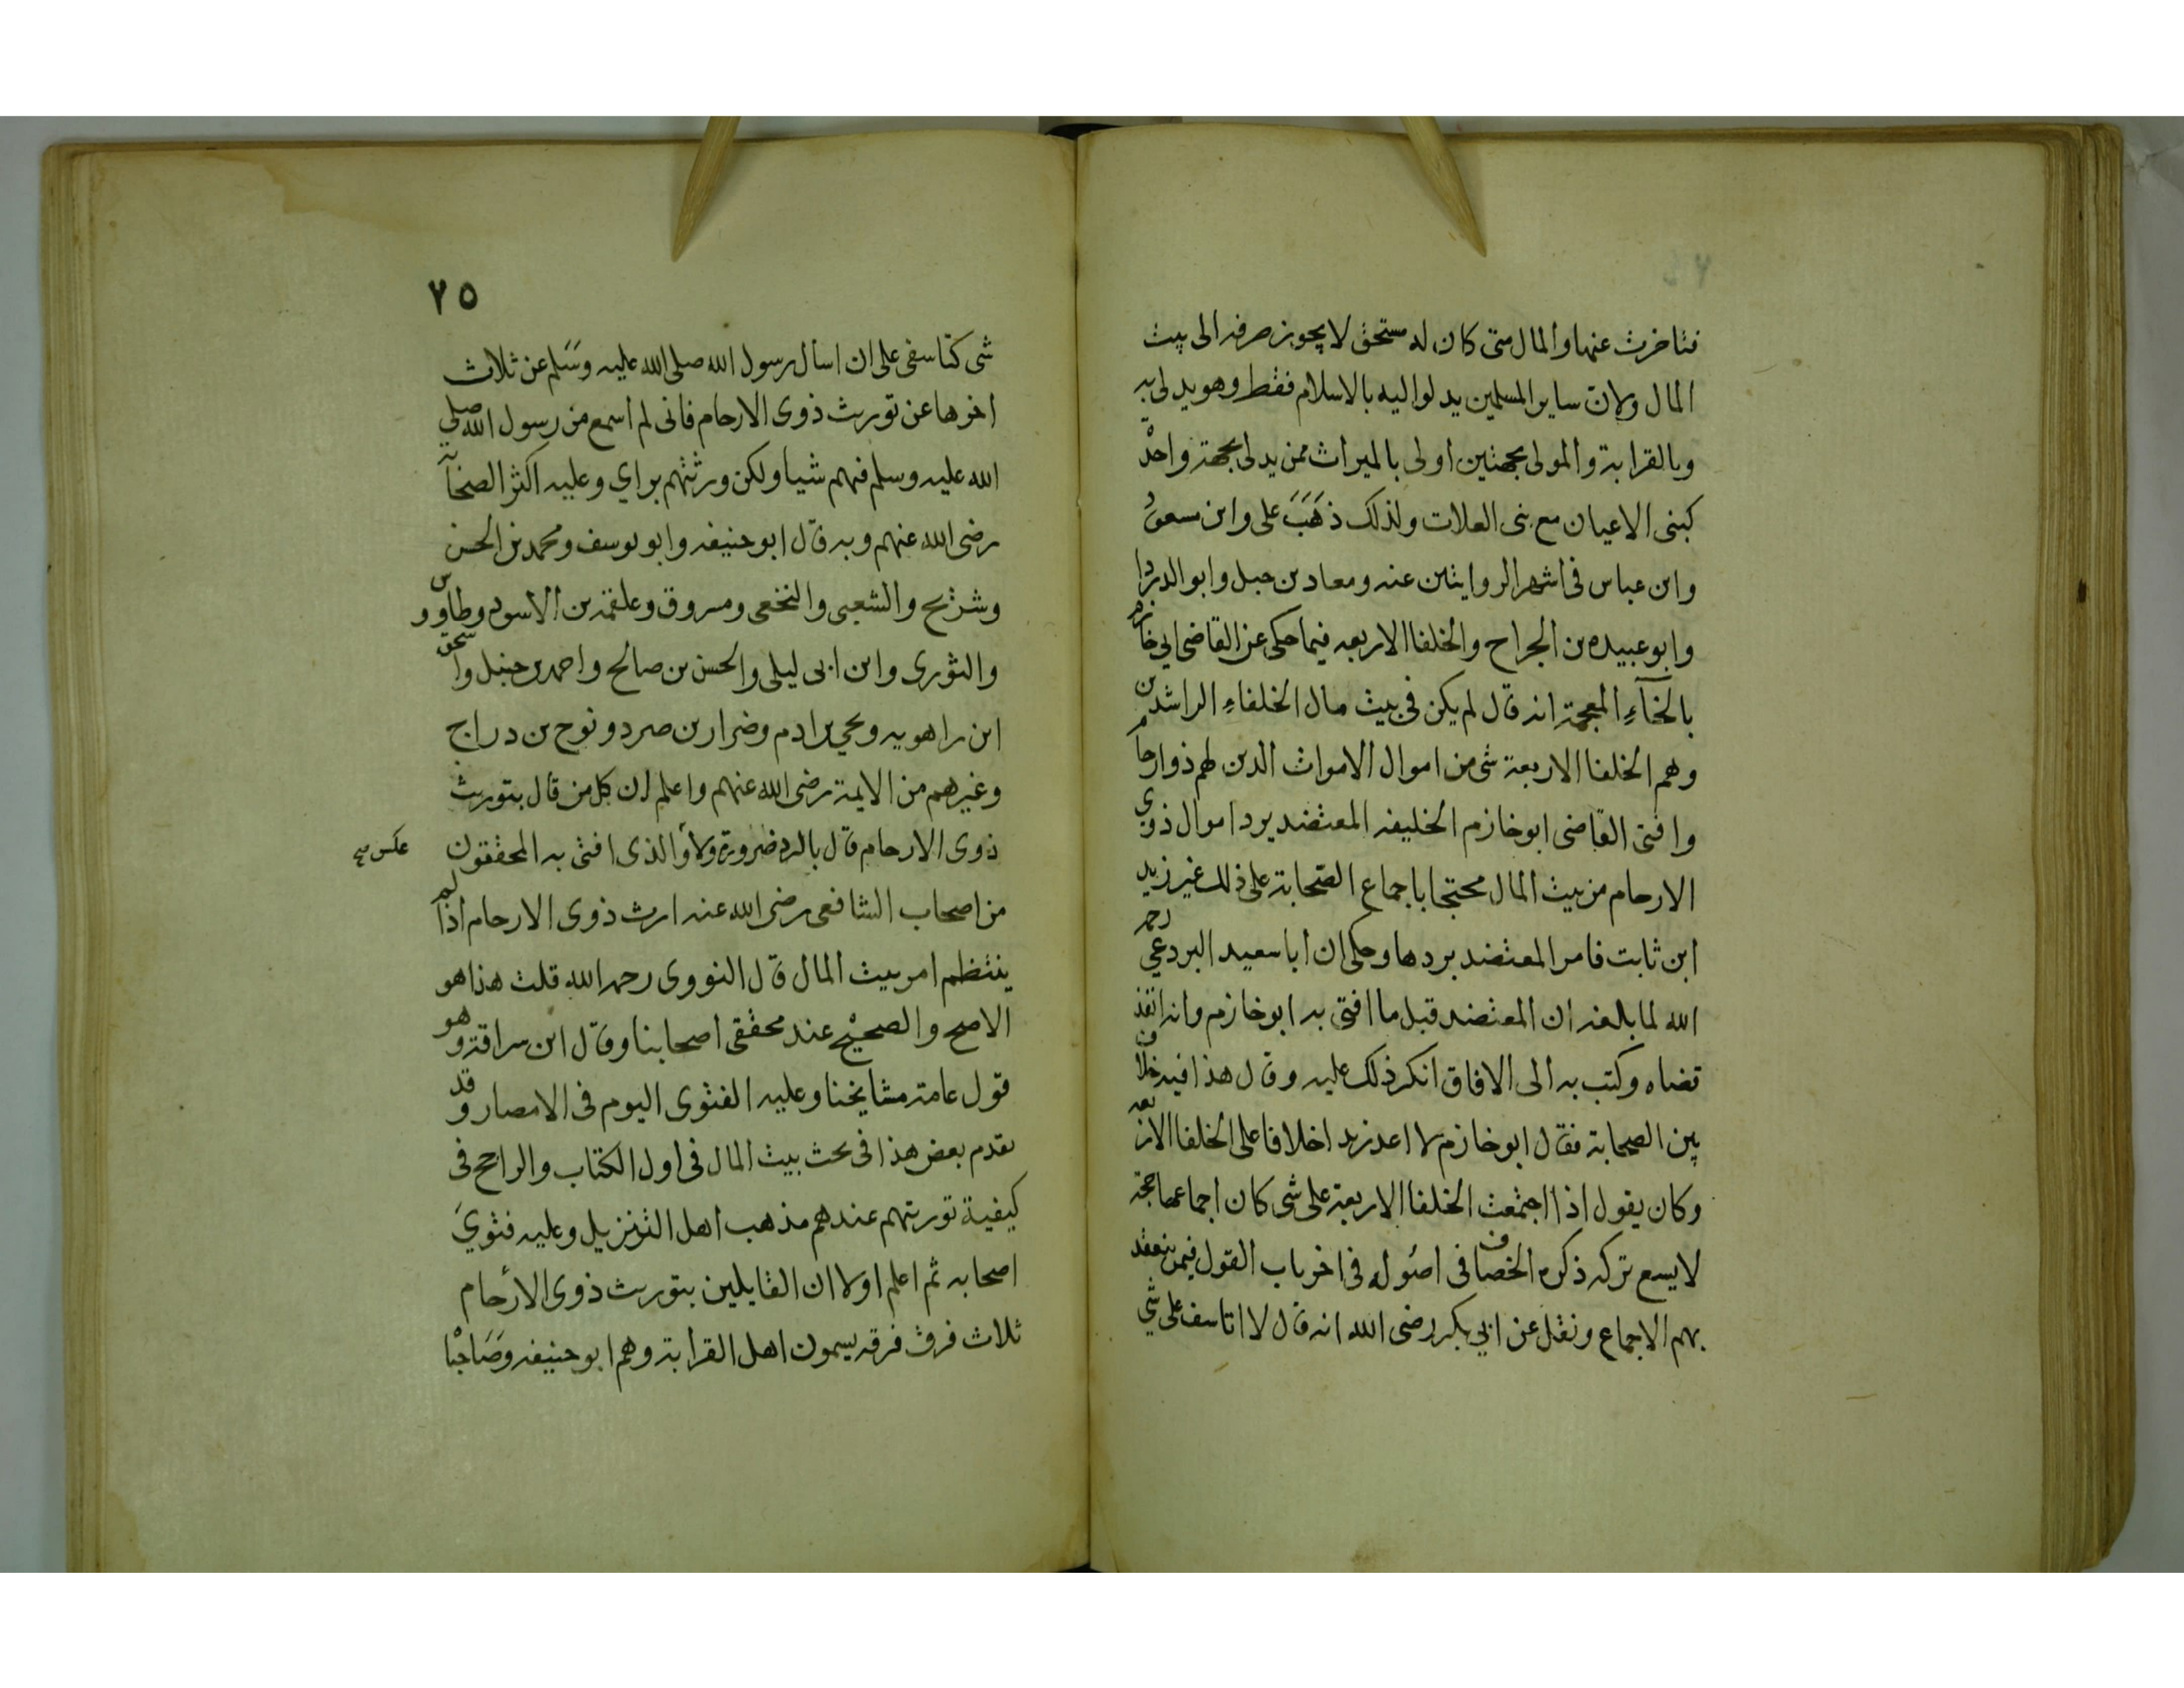 فتاخرت عنها والمال متى كان له مستحق لا يجوز صرفه الى بيت
المال ولان ساير المسلمين يدلوا اليه بالاسلام فقط وهو يدلى به
وبالقرابة والمولى بجهتين اولى بالميراث ممن يدلى بجهة واحدة
كبنى الاعيان مع بنى العلات ولذلك ذهب على وابن مسعود
وابن عباس فى اشهر الروايتين عنه ومعاد بن جبل وابو الدردا
وابو عبيده بن الجراح والخلفا الاربعه فيما حكى عن القاضى ابي خازم
بالخآء المعجمة انه قال لم يكن فى بيت مال الخلفاء الراشدين
وهم الخلفا الاربعة شى من اموال الاموات الدين لهم ذوارحام
وافتى القاضى ابو خازم الخليفه المعتضد برد اموال ذوي
الارحام من بيت المال محتجا باجماع الصحابة على ذلك غير زيد
ابن ثابت فامر المعتضد بردها وحكى ان ابا سعيد البردعي رحمه
الله لما بلغه ان المعتضد قبل ما افتى به ابو خازم وانه انفذ
قضاه وكتب به الى الافاق انكر ذلك عليه وقال هذا فيه خلاف
بين الصحابة فقال ابو خازم لا اعد زيد اخلافا على الخلفا الاربعه
وكان يقول اذا اجتمعت الخلفا الاربعة على شى كان اجماعها حجة
لا يسع تركه ذكره الخصاف فى اصوله فى اخر باب القول فيمن ينعقد
بهم الاجماع ونقل عن ابي بكر رضى الله انه قال لا اتاسف على شي
٧٥
شى كتاسفى على ان اسأل رسول الله صلى الله عليه وسلم عن ثلاث
اخرها عن توريث ذوى الارحام فانى لم اسمع من رسول الله صلي
الله عليه وسلم فيهم شيا ولكن ورثتهم براي وعليه اكثر الصحابة
رضى الله عنهم وبه قال ابو حنيفه وابو يوسف ومحمد بن الحسن
وشريح والشعبى والنخعى ومسروق وعلقمة بن الاسود وطاووس و
والثورى وابن ابى ليلى والحسن بن صالح واحمد بن حنبل واسحق
ابن راهويه ويحيي بن ادم وضرار بن صرد ونوح بن دراج
وغيرهم من الايمة رضى الله عنهم واعلم ان كل من قال بتوريث
ذوى الارحام قال بالرد ضرورة ولا والذى افتى به المحققون
عكس
من اصحاب الشافعى رضى الله عنه ارث ذوى الارحام اذا لم
ينتظم امر بيت المال قال النووى رحمه الله قلت هذا هو
الاصح والصحيح عند محققى اصحابنا وقال ابن سراقة وهو
قول عامة مشايخنا وعليه الفتوى اليوم فى الامصار وقد
تقدم بعض هذا فى بحث بيت المال فى اول الكتاب والراجح فى
كيفية توريثهم عندهم مذهب اهل التنزيل وعليه فتوي
اصحابه ثم اعلم اولا ان القايلين بتوريث ذوى الارحام
ثلاث فرق فرقه يسمون اهل القرابة وهم ابو حنيفه وصاحبا